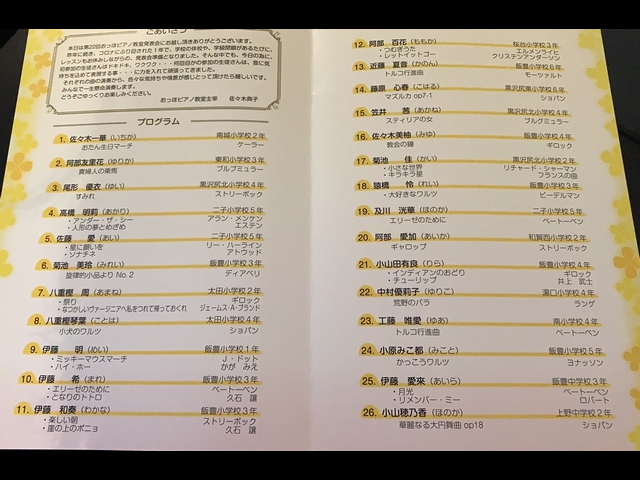 ごあいさつ
本日は第22回おっぽピアノ教室発表会にお越し頂きありがとうございます。
昨年に続き、コロナにふり回された1年で、学校の休校や、学級閉鎖があるたびに、
レッスンもお休みしながらの、発表会準備となりました。そんな中でも、今日の為に、
初参加の生徒さんはドキドキ、ワクワク・・・何回目かの参加の生徒さんは、音に気
持ちを込めて表現する事・・・に力を入れて頑張ってきました。
それぞれの曲の演奏から、色々な気持ちや情景が感じとって頂けたら嬉しいです。
みんなで一生懸命演奏します。
どうぞごゆっくりお楽しみください。
おっぽピアノ教室主宰　佐々木典子
プログラム
1. 佐々木一華 (いちか)　南城小学校2年
おたん生日マーチ　ケーラー
2. 阿部友里花 (ゆりか)　東和小学校3年
貴婦人の乗馬　ブルブミュラー
3. 尾形　優衣 (ゆい)　黒沢尻北小学校4年
すみれ　ストリーボック
4. 高橋　明莉 (あかり)　二子小学校5年
・アンダー・ザ・シー　アラン・メンケン
・人形の夢とめざめ　エステン
5. 佐藤　愛 (あい)　二子小学校5年
・星に願いを　リー・ハーライン
・ソナチネ　アトウッド
6. 菊池　美玲 (みれい)　飯豊小学校3年
旋律的小品より No.2　ディアベリ
7. 八重樫　周 (あまね)　太田小学校2年
・祭り　ギロック
・なつかしいヴァージニアへ私をつれて帰っておくれ　ジェームス・A・ブランド
8. 八重樫琴葉 (ことは)　太田小学校4年
小犬のワルツ　ショパン
9. 伊藤　明 (めい)　飯豊小学校1年
・ミッキーマウスマーチ　J・ドット
・ハイ・ホー　かが　みえ
10. 伊藤　希 (まれ)　飯豊小学校3年
・エリーゼのために　ベートーベン
・となりのトトロ　久石　譲
11. 伊藤　和奏 (わかな)　飯豊小学校3年
・楽しい朝　ストリーボック
・崖の上のポニョ　久石　譲
12. 阿部　百花 (ももか)　桜台小学校3年
・つむぎうた　エルメンライヒ
・レットイットゴー　クリスティアンダーソン
13. 近藤　夏音 (かのん)　飯豊小学校6年
トルコ行進曲　モーツァルト
14. 藤原　心春 (こはる)　黒沢尻東小学校6年
マズルカ op7-1　ショパン
15. 笠井　茜 (あかね)　黒沢尻北小学校4年
スティリアの女　ブルグミュラー
16. 佐々木美柚 (みゆ)　飯豊小学校4年
教会の鐘　ギロック
17. 菊池　佳 (かい)　黒沢尻北小学校2年
・小さな世界　リチャード・シャーマン
・キラキラ星　フランスの曲
18. 猿橋　怜 (れい)　飯豊小学校3年
・大好きなワルツ　ビーデルマン
19. 及川　洸華 (ほのか)　二子小学校5年
エリーゼのために　ベートーベン
20. 阿部　愛加 (あいか)　和賀西小学校2年
ギャロップ　ストリーボック
21. 小山田有良 (りら)　飯豊小学校4年
・インディアンのおどり　ギロック
・チューリップ　井上　武士
22. 中村優莉子 (ゆりこ)　湯口小学校4年
荒野のバラ　ランゲ
23. 工藤　唯愛 (ゆあ)　南小学校4年
トルコ行進曲　ベートーベン
24. 小原みこ都 (みこと)　飯豊小学校5年
かっこうワルツ　ヨナッソン
25. 伊藤　愛來 (あいら)　飯豊中学校3年
・月光　ベートーベン
・リメンバー・ミー　ロバート
26. 小山穂乃香 (ほのか)　上野中学校2年
華麗なる大円舞曲 op18　ショパン